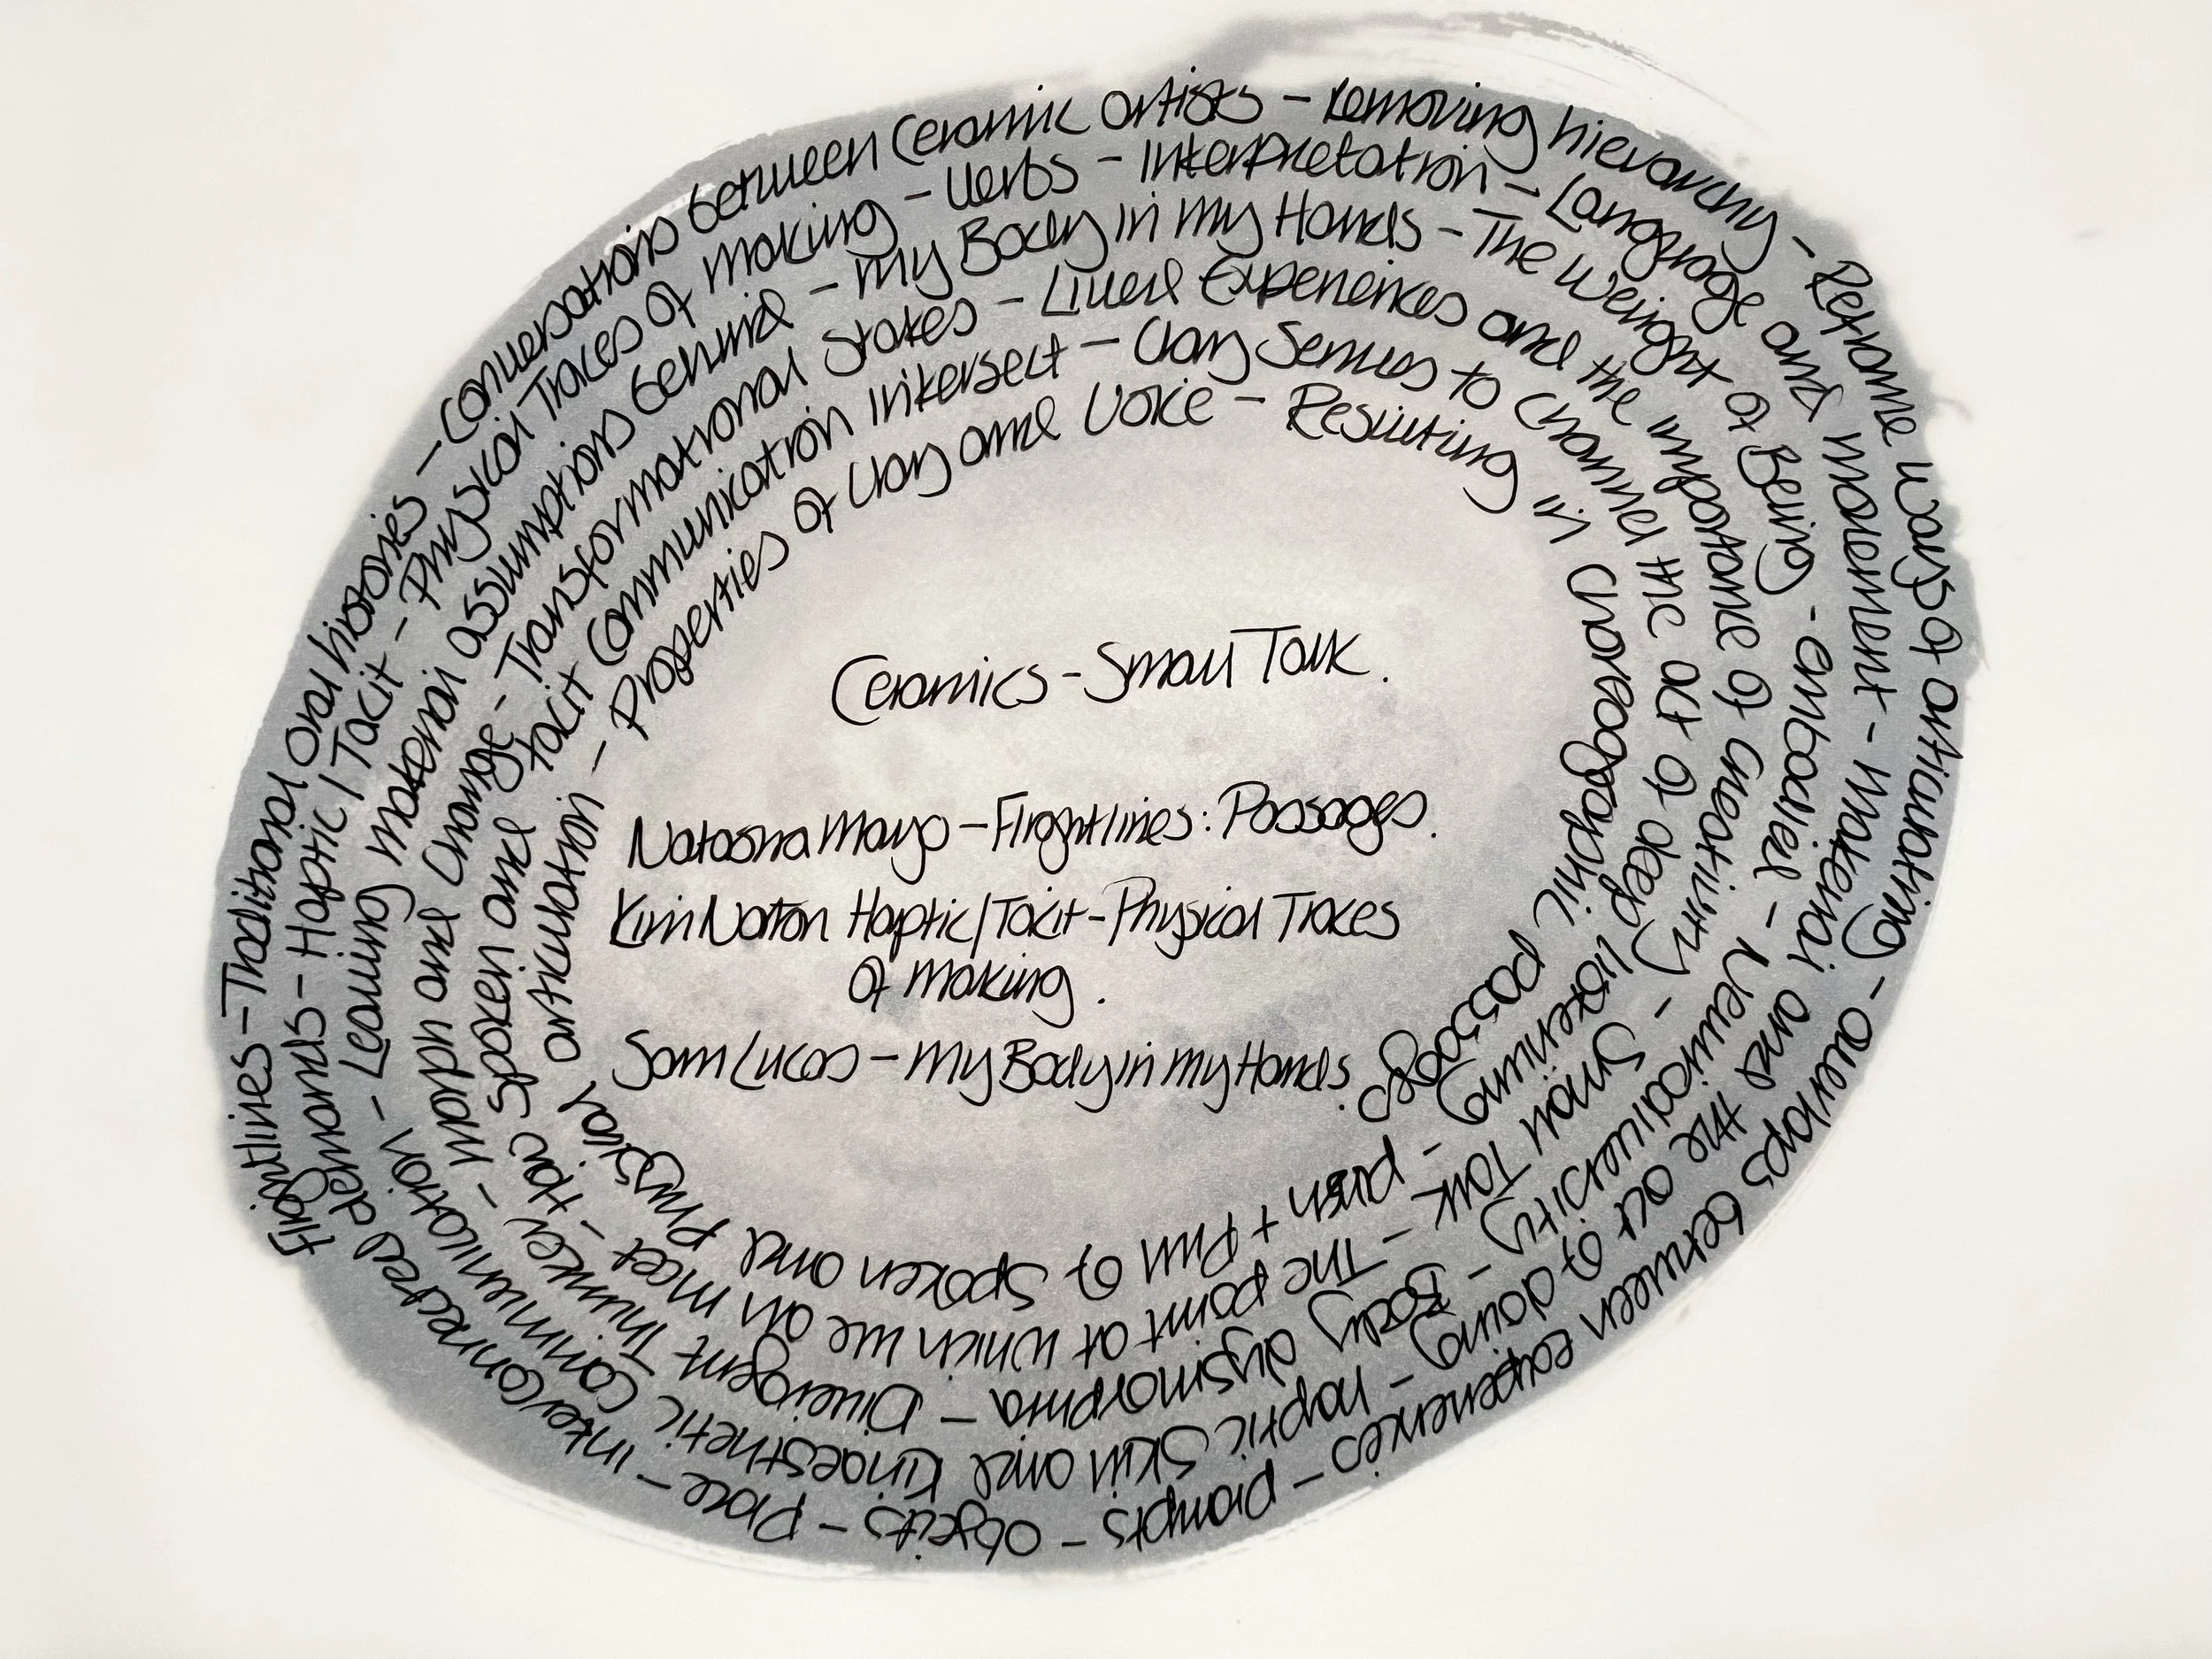 Flightlines – Traditional oral histories – Conversations between Ceramic artists – removing hierarchy – Reframe ways of articulating – overlaps between experiences – prompts – objects – Place – interconnected
demands – Haptic / Tacit – Physical Traces of making – Verbs – Interpretation – Language and movement – material and the act of doing – haptic skill and kinaesthetic communication
– Leaving material assumptions behind – My Body in my Hands – The weight of Being – embodied – Neurodiversity – Body dysmorphia – Divergent Thinker
– morph and change – Transformational states – Lived Experiences and the importance of creativity – Small Talk – The point at which we all meet
– How spoken and tacit communication intersect – Clay Serves to channel the act of deep listening – push + pull of spoken and physical
articulation – Properties of clay and voice – Resulting in choreographic passages.
Ceramics – Small Talk.
Natasha Mayo – Flightlines: Passages.
Kim Norton Haptic / Tacit – Physical Traces
of making.
Sam Lucas – My Body in my Hands.